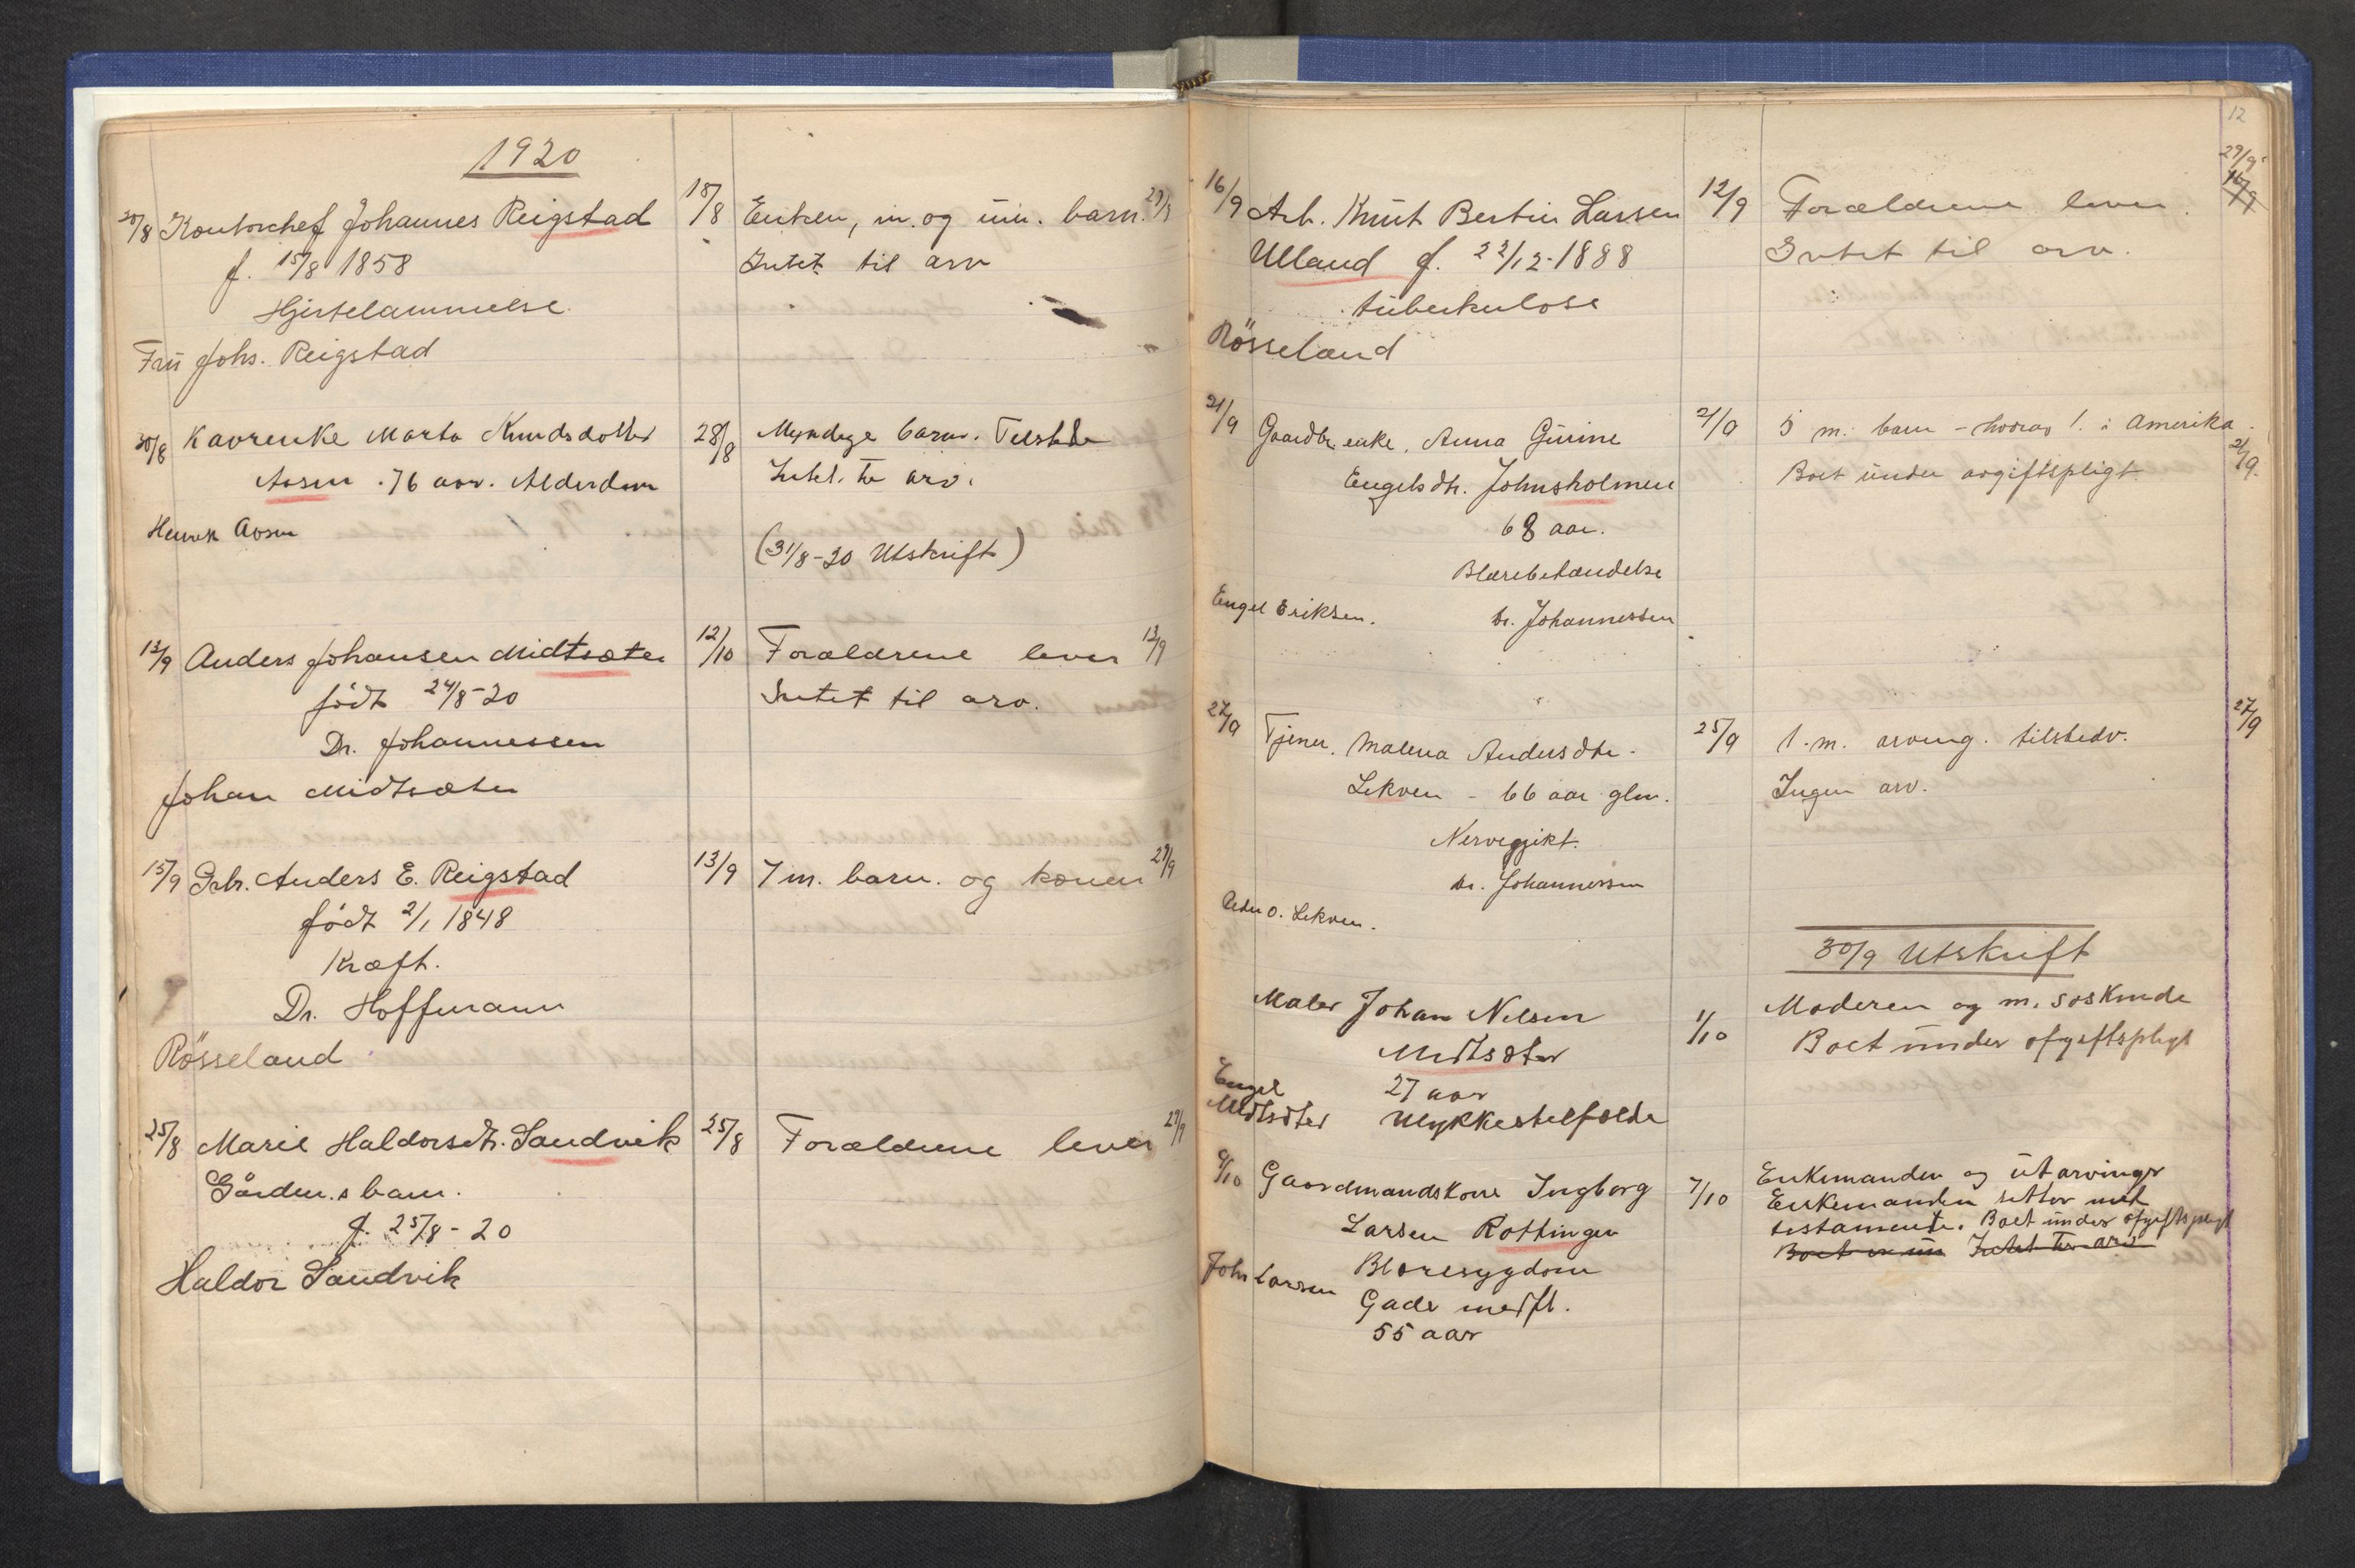 1920
20/8 Kontorchef Johannes Reigstad 18/8 Enken, m. og um. barn. 29/9
f. 15/8 1858 Intet til arv
Hjertelammelse.
Fru Johs. Reigstad
30/8 Kaarenke Marta Knudsdotter 28/8 Myndige barn. Tilstede
Aasen. 76 aar. Alderdom Intet til arv.
Henrik Aasen
(31/8-20 Utskrift)
13/9 Anders Johansen Midtsæter 12/10 Forældrene lever 13/9
født 24/8-20 Intet til arv.
Dr. Johannessen
Johan Midtsæter
15/9 Grbr. Anders E. Reigstad 13/9 7 m. barn. og konen 29/9
født 2/1 1848
Kræft.
Dr. Hoffmann
Rösseland
25/8 Marie Haldorsdtr. Sandvik 25/8 Forældrene lever 29/9
Gårdm.s barn.
f. 25/8-20
Haldor Sandvik
12
29/9
16/9 Arb. Knut Bertin Larsen 12/9 Forældrene lever. 16/9
Ulland f. 22/12-1888 Intet til arv.
tuberkulose
Rösseland
21/9 Gaardbr enke. Anna Gurine 21/9 5 m. barn - hvorav 1. i Amerika.
Engelsdtr. Johnsholmen Boet under avgiftspligt 21/9.
68 aar.
Blærebetændelse
Engel Eriksen. Dr. Johannessen
27/9 Tjener. Malena Andersdtr. 25/9 1. m. arving. tilstede. 27/9
Lekven - 66 aar glm. Ingen arv.
Nervegjikt.
Dr. Johannessen
O. Lekven.
30/9 Utskrift
Maler Johan Nilsen 1/10 Moderen og m. søskende
Midtsæter Boet under afgiftspligt
Engel 27 aar
Midtsæter Ulykkestilfælde
9/10 Gaardmandskone Ingborg 7/10 Enkemanden og utarvinger
Larsen Rottingen Enkemanden sitter med
testamente. Boet under afgiftspligt
Blæresygdom Boet er un Intet til arv
John Larsen Gade medft.
55 aar